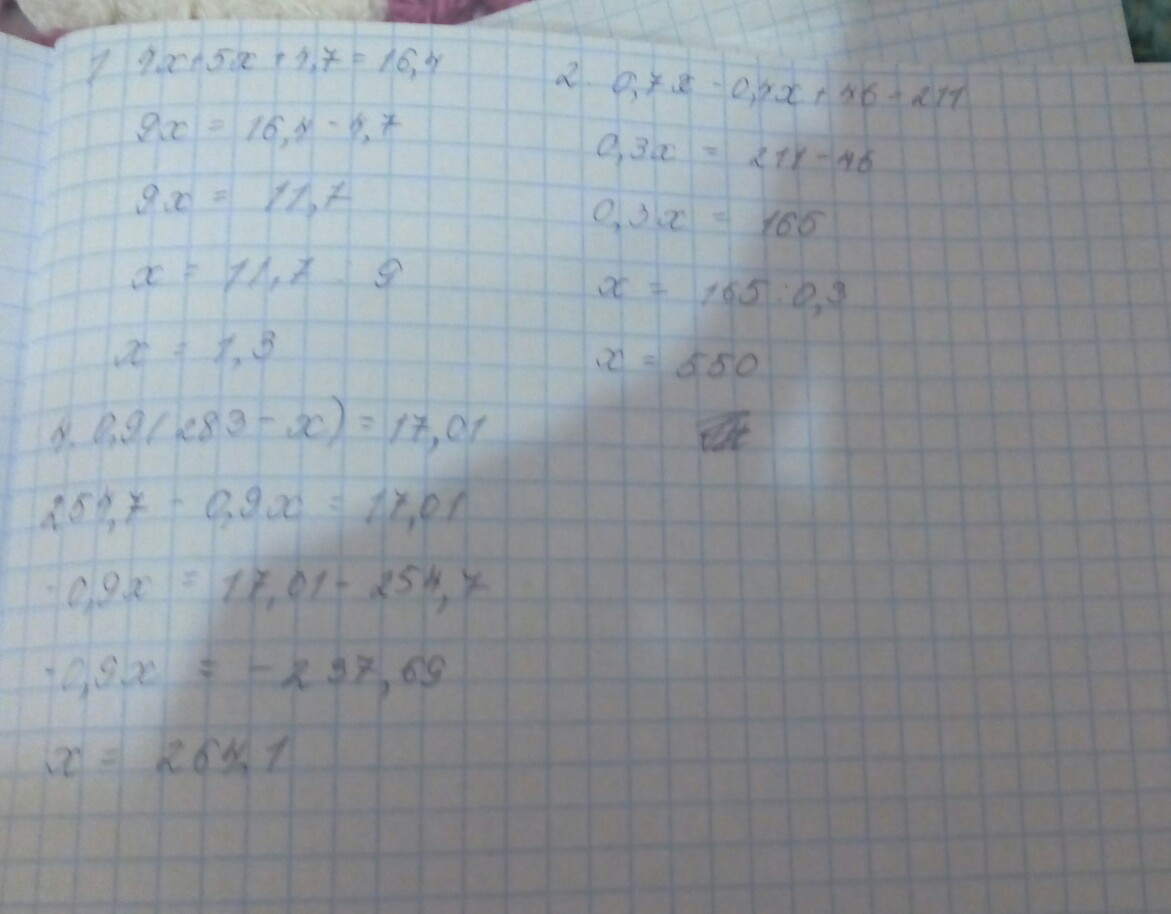 1 4x+5x+4,7=16,4
9x = 16,4-4,7
9x = 11,7
x = 11,7 : 9
x = 1,3
2. 0,7x - 0,4x + 46 = 211
0,3x = 211-46
0,3x = 165
x = 165:0,3
x = 550
4. 0,9(283-x)=17,01
254,7 - 0,9x = 17,01
-0,9x = 17,01 - 254,7
-0,9x = -237,69
x = 264,1